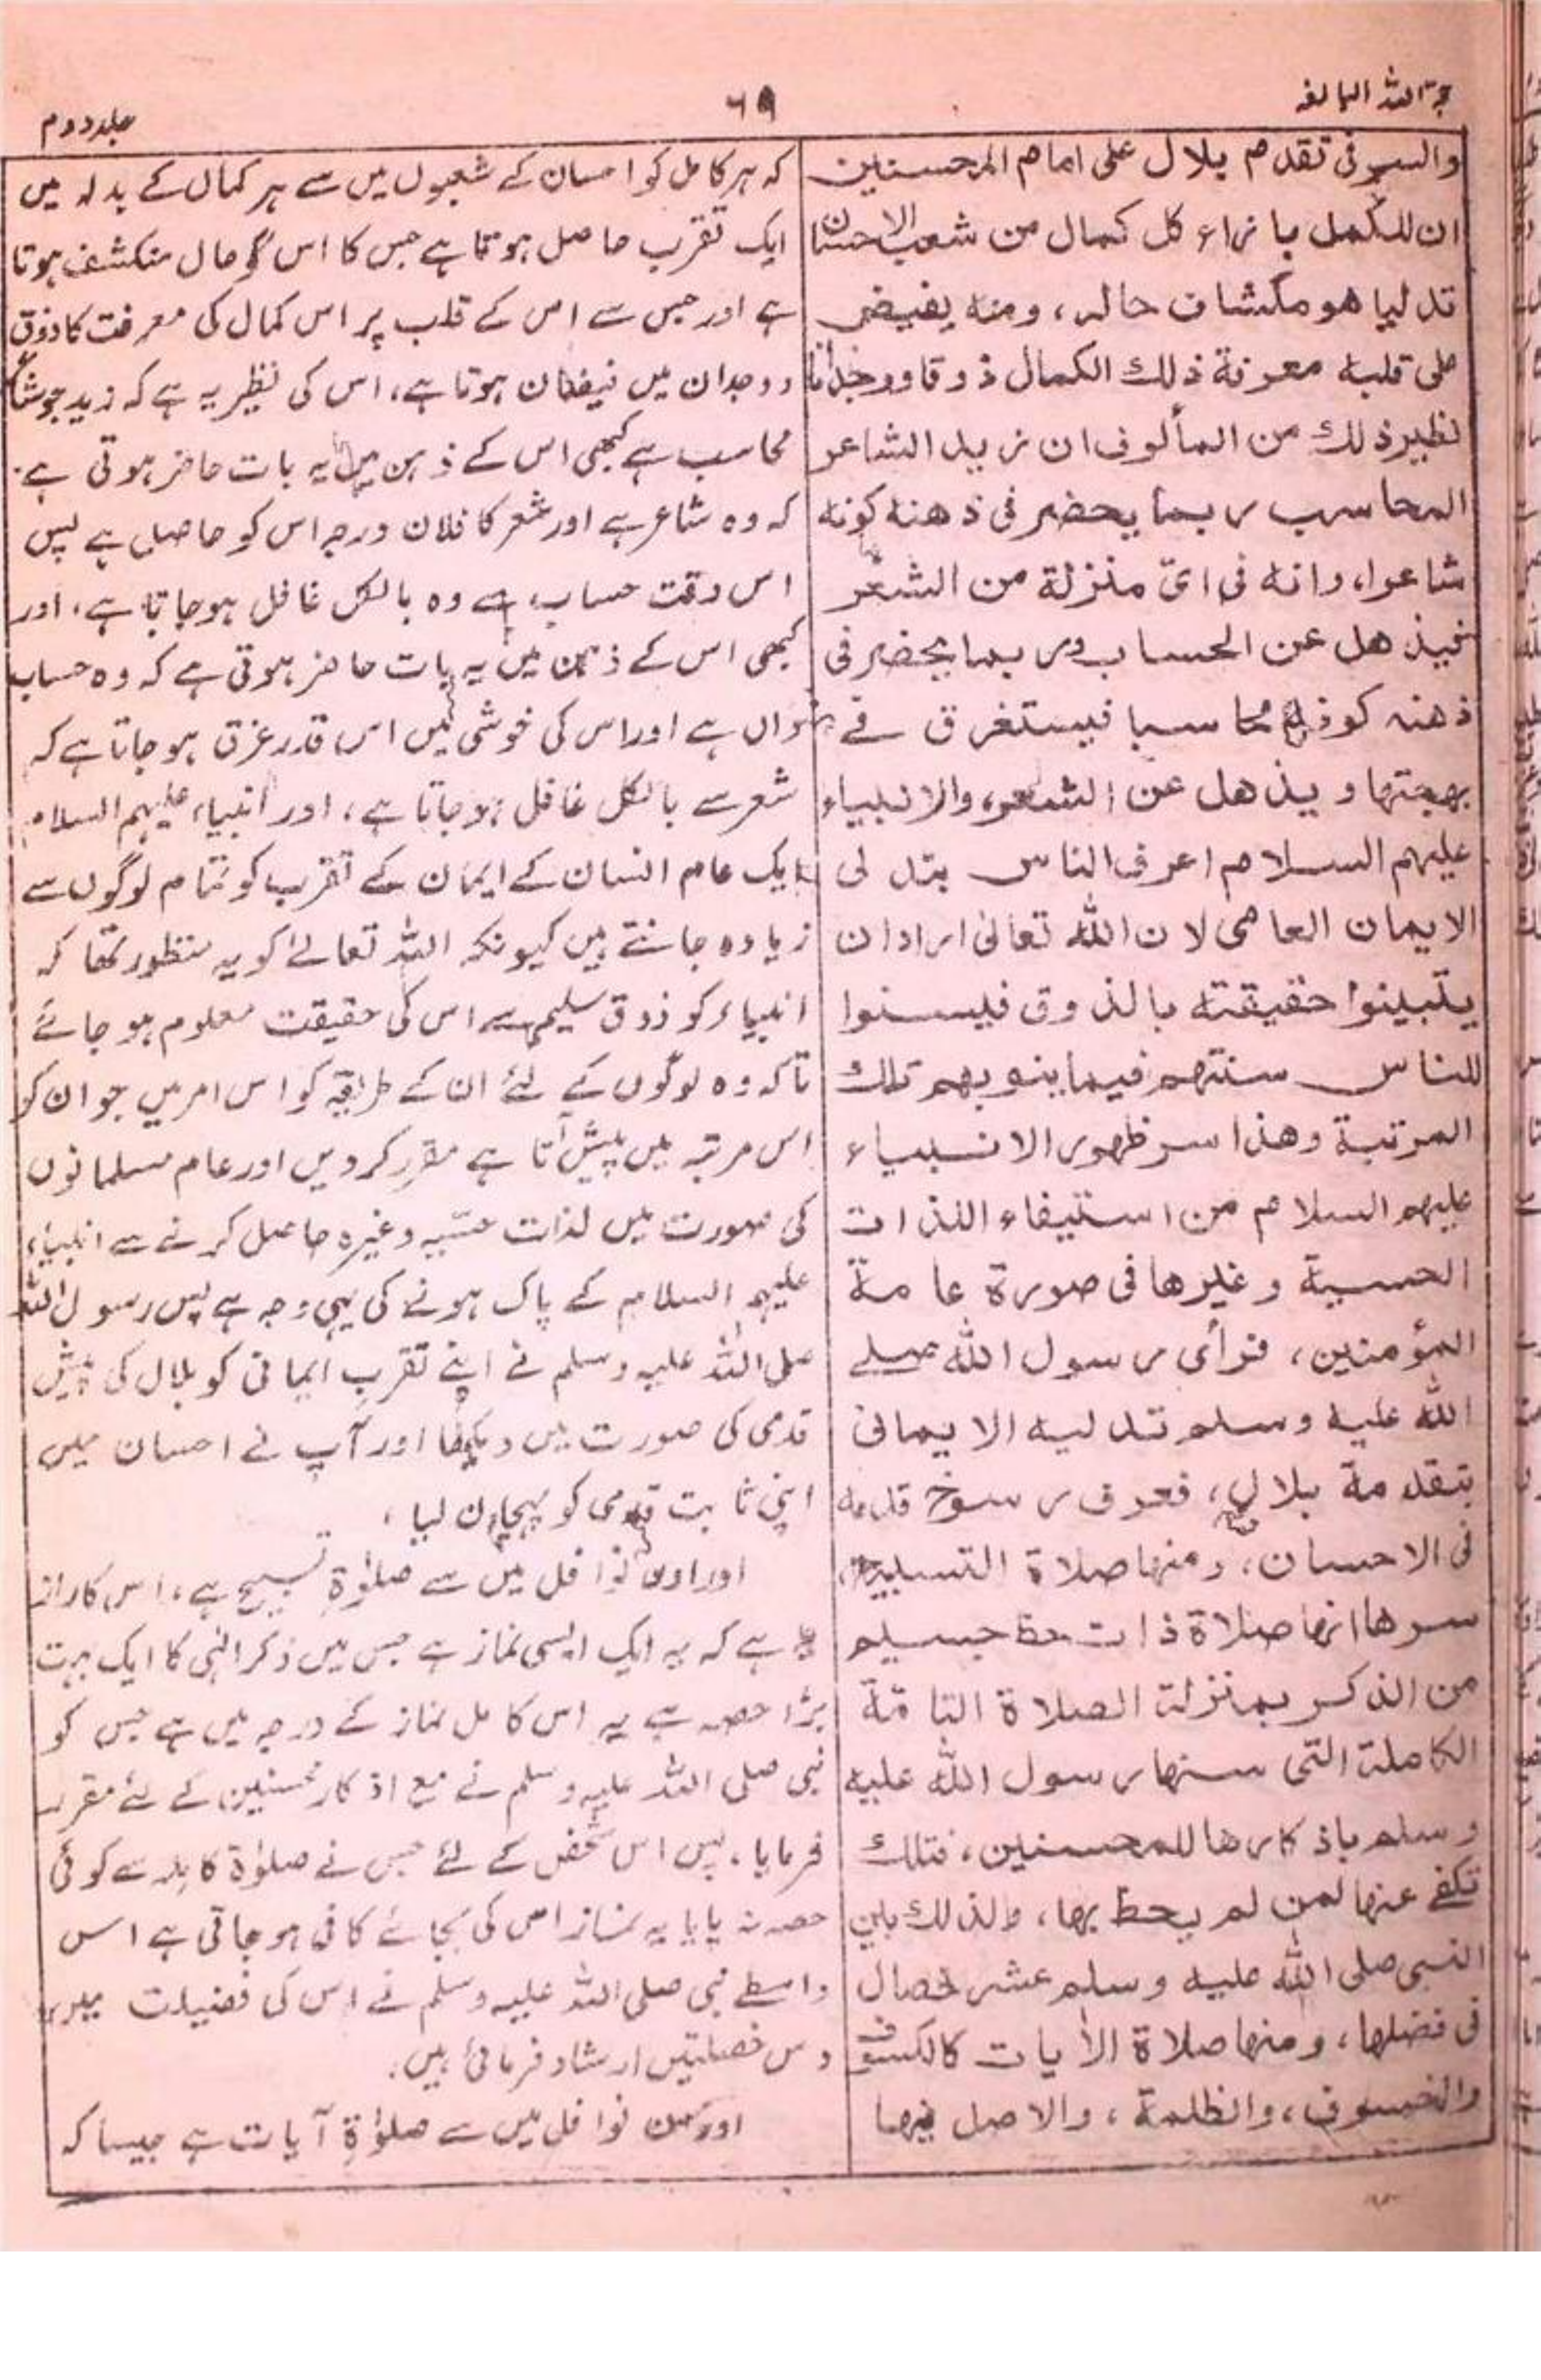 حجۃ اللہ البالغہ
۶۹
جلد دوم
والسر فی تقدم بلال علی امام المحسنین
ان للکمل بازاء کل کمال من شعب الاحسان
تدلیا هو مکشاف حاله، ومنه یفیض
علی قلبه معرفة ذلك الکمال ذوقا ووجدانا
نظیر ذلك من المألوف ان زیدا الشاعر
المحاسب ربما یحضر فی ذهنه کونه
شاعرا، وانه فی ایّ منزلة من الشعر
فیذهل عن الحساب وربما یحضر فی
ذهنه کونه محاسبا فیستغرق فے
بهجتها ویذهل عن الشعر، والانبیاء
علیهم السلام اعرف الناس بتدلی
الایمان العامی لان الله تعالیٰ اراد ان
یتبینوا حقیقته بالذوق فیسنوا
للناس سنتهم فیما ینوبهم تلك
المرتبة وهذا سر ظهور الانبیاء
علیهم السلام من استیفاء اللذات
الحسیة وغیرها فی صورة عامة
المؤمنین، فرأی رسول الله صلے
الله علیه وسلم تدلیه الایمانی
بتقدمة بلال، فعرف رسوخ قدمه
فی الاحسان، ومنها صلاة التسبیح،
سرها انها صلاة ذات حظ جسیم
من الذکر بمنزلة الصلاة التامّة
الکاملة التی سنها رسول الله علیه
وسلم باذکارها للمحسنین، فتلك
تکفے عنها لمن لم یحظ بها، ولذلك بین
النبی صلی الله علیه وسلم عشر خصال
فی فضلها، ومنها صلاة الآیات کالکسوف
والخسوف، والظلمة، والاصل فیها
کہ ہر کامل کو احسان کے شعبوں میں سے ہر کمال کے بدلہ میں
ایک تقرب حاصل ہوتا ہے جس کا اس کو حال منکشف ہوتا
ہے اور جس سے اس کے قلب پر اس کمال کی معرفت کا ذوق
و وجدان میں فیضان ہوتا ہے، اس کی نظیر یہ ہے کہ زید جو شاعر
محاسب ہے کبھی اس کے ذہن میں یہ بات حاضر ہوتی ہے
کہ وہ شاعر ہے اور شعر کا فلان درجہ اس کو حاصل ہے پس
اس وقت حساب سے وہ بالکل غافل ہو جاتا ہے، اور
کبھی اس کے ذہن میں یہ بات حاضر ہوتی ہے کہ وہ حساب
داں ہے اور اس کی خوشی میں اس قدر غرق ہو جاتا ہے کہ
شعر سے بالکل غافل ہو جاتا ہے، اور انبیاء علیہم السلام
ایک عام انسان کے ایمان کے تقرب کو تمام لوگوں سے
زیادہ جانتے ہیں کیونکہ اللہ تعالےٰ کو یہ منظور تھا کہ
انبیاء کو ذوق سلیم سے اس کی حقیقت معلوم ہو جائے
تاکہ وہ لوگوں کے لئے ان کے طریقہ کو اس امر میں جو ان کو
اس مرتبہ میں پیش آتا ہے مقرر کر دیں اور عام مسلمانوں
کی صورت میں لذات حسّیہ وغیرہ حاصل کرنے سے انبیاء
علیہم السلام کے پاک ہونے کی یہی وجہ ہے پس رسول اللہ
صلی اللہ علیہ وسلم نے اپنے تقرب ایمانی کو بلال کی پیش
قدمی کی صورت میں دیکھا اور آپ نے احسان میں
اپنی ثابت قدمی کو پہچان لیا،
اور اون نوافل میں سے صلوٰۃ تسبیح ہے، اس کا راز
ہے کہ یہ ایک ایسی نماز ہے جس میں ذکر الٰہی کا ایک بہت
بڑا حصہ ہے یہ اس کامل نماز کے درجہ میں ہے جس کو
نبی صلی اللہ علیہ وسلم نے مع اذکار محسنین کے لئے مقرر
فرمایا، پس اس شخص کے لئے جس نے صلوٰۃ کاملہ سے کوئی
حصہ نہ پایا یہ نماز اس کی بجائے کافی ہو جاتی ہے اس
واسطے نبی صلی اللہ علیہ وسلم نے اس کی فضیلت میں
دس خصلتیں ارشاد فرمائی ہیں.
اور نوافل میں سے صلوٰۃ آیات ہے جیسا کہ